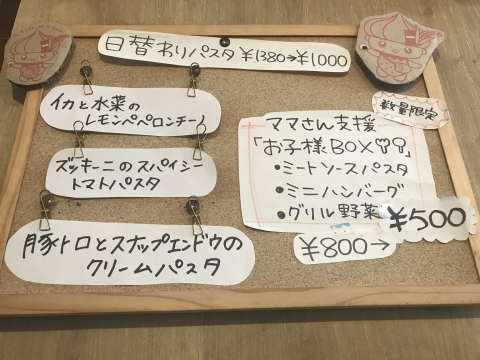 日替わりパスタ ¥1380→¥1000
イカと水菜の
レモンペペロンチーノ
ズッキーニのスパイシー
トマトパスタ
豚トロとスナップエンドウの
クリームパスタ
数量限定
ママさん支援
「お子様BOX🍴」
・ミートソースパスタ
・ミニハンバーグ
・グリル野菜
¥800→
¥500